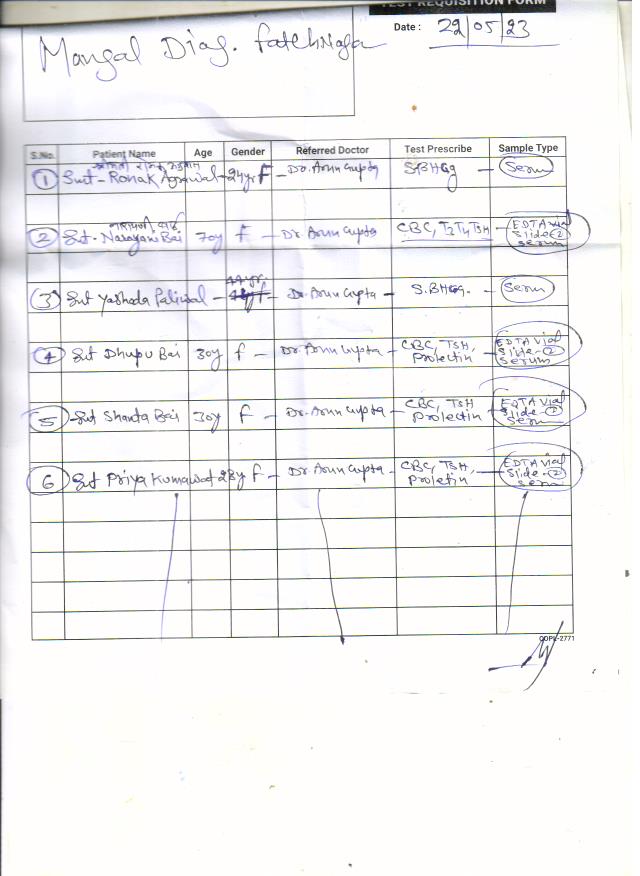 TEST REQUISITION FORM
Date : 22/05/23
Mangal Diag. Fatehnaga
S.No. Patient Name Age Gender Referred Doctor Test Prescribe Sample Type
1 Smt - Ronak Agrawal - 24yr F - Dr. Arun Gupta S.BHCg - Serum
नारायणी बाई
2 Smt. Narayani Bai 70y F - Dr. Arun Gupta CBC, T3 T4 TSH - EDTA vial
Slide-2
serum
44yr.
3 Smt Yashoda Paliwal - f - Dr. Arun Gupta - S.BHCg. - Serum
4 Smt Dhupu Bai 30y f - Dr. Arun Gupta - CBC, TSH, EDTA vial
Prolectin - Slide-2
serum
5 Smt Shanta Bai 30y F - Dr. Arun Gupta - CBC, TSH EDTA vial
Prolectin - Slide-
serum
6 Smt Priya Kumawat 28y F - Dr Arun Gupta - CBC, TSH, EDTA vial
Proletin Slide-2
serum
-2771